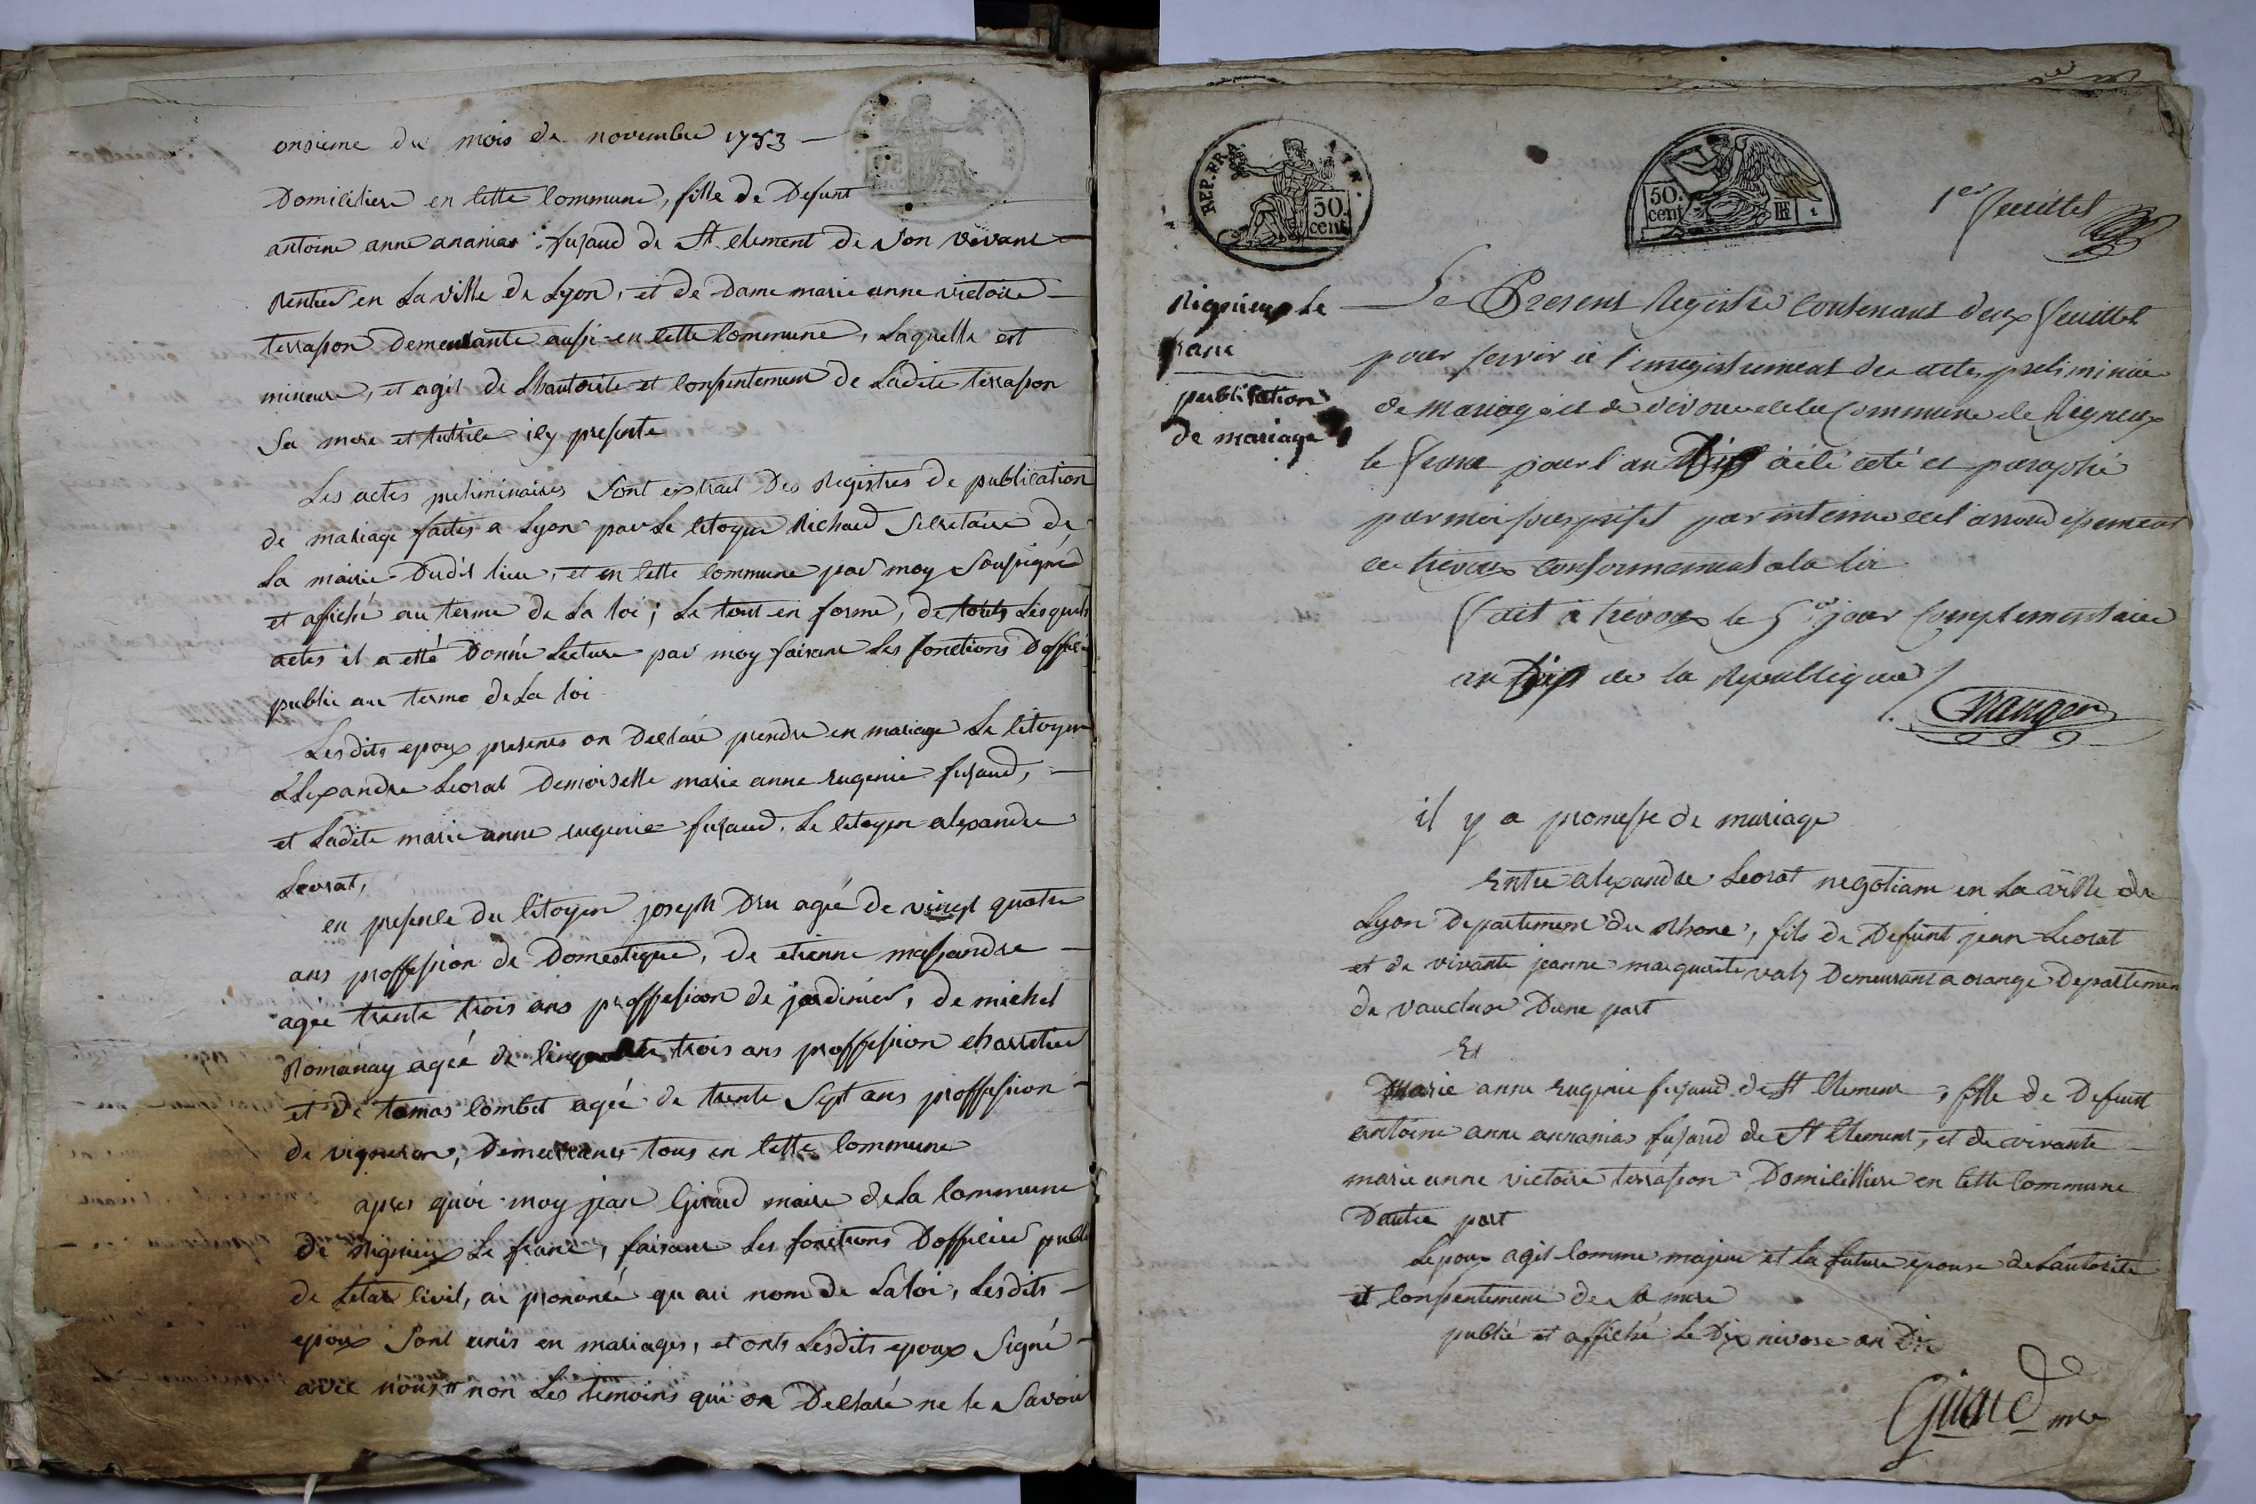 onsieme du mois de novembre 1783
Domiciliere en cette commune, fille de Defunt
antoine anne ananias fujaud de St clement de son vivant
Rentier en La ville de Lyon, et de Dame marie anne victoire
terrasson demeurante aussi en cette commune, Laquelle est
mineure, et agit de Lhautorité et consentement de Ladite terrasson
sa mere et tutrice icy presente
Les actes preliminaires sont extrait Des Registres de publication
de mariage faites a Lyon par Le citoyen Richard Secretaire de
La mairie Dudit lieu, et en cette commune par moy Soussigné
et affiché au terme de La loi; Le tout en forme, de touts Lesquels
actes il a etté Donné Lecture par moy faisant Les fonctions D'officié
public au terme de La loi
Lesdits epoux presents on Declaré prendre en mariage Le citoyen
alexandre Leorat Demoiselle marie anne eugenie fujaud,
et Ladite marie anne eugenie fujaud, Le citoyen alexandre
Leorat,
en presence du citoyen joseph Dru agée de vingt quatre
ans proffession de Domestique, de etienne massandre
agée trente trois ans proffession de jardinier, de michel
Romanay agée de cinquante trois ans proffession charretier
et de tomas combet agée de trente sept ans proffession
de vigneron, Demeurants tous en cette commune
apres quoi moy jean Girard maire de La commune
de Rignieux Le franc, faisant Les fonctions D'officier public
de Letat civil, ai prononcé qu au nom de La loi, Lesdits
epoux sont unis en mariages, et onts Lesdits epoux Signé
avec nous non Les temoins qui on Declaré ne le Savoir
REP. FRA.
50.
cent
50.
cent
1er feuillet
Rignieux Le
franc
publication
de mariage
Le Present Registre contenant deux feuillets
pour servir à l'enregistrement des actes preliminaires
de Mariage et de divorce de la commune de Rigneux
le franc pour l'an Dix à été coté et paraphé
par moi sous prefet par interim de l'arrondissement
de trevoux conformement a la loi
fait à trevoux le 5e jour complementaire
an de la Republique
il y a promesse de mariage
Entre alexandre Leorat negotiant en La ville de
Lyon Departement du Rhone, fils de Defunt jean Leorat
et de vivante jeanne marguerite Demeurant a orange Departement
de vaucluse D'une part
Et
Marie anne Eugenie fujaud de St Clement, fille de Defunt
antoine anne annanias fujaud de St Clement, et de vivante
marie anne victoire terrasson Domicilliere en cette commune
D'autre part
Lepoux agit comme majeur et La future epouse de Lautorité
et consentement de sa mere
publié et affiché Le Dix nivose an Dix
Girard mre